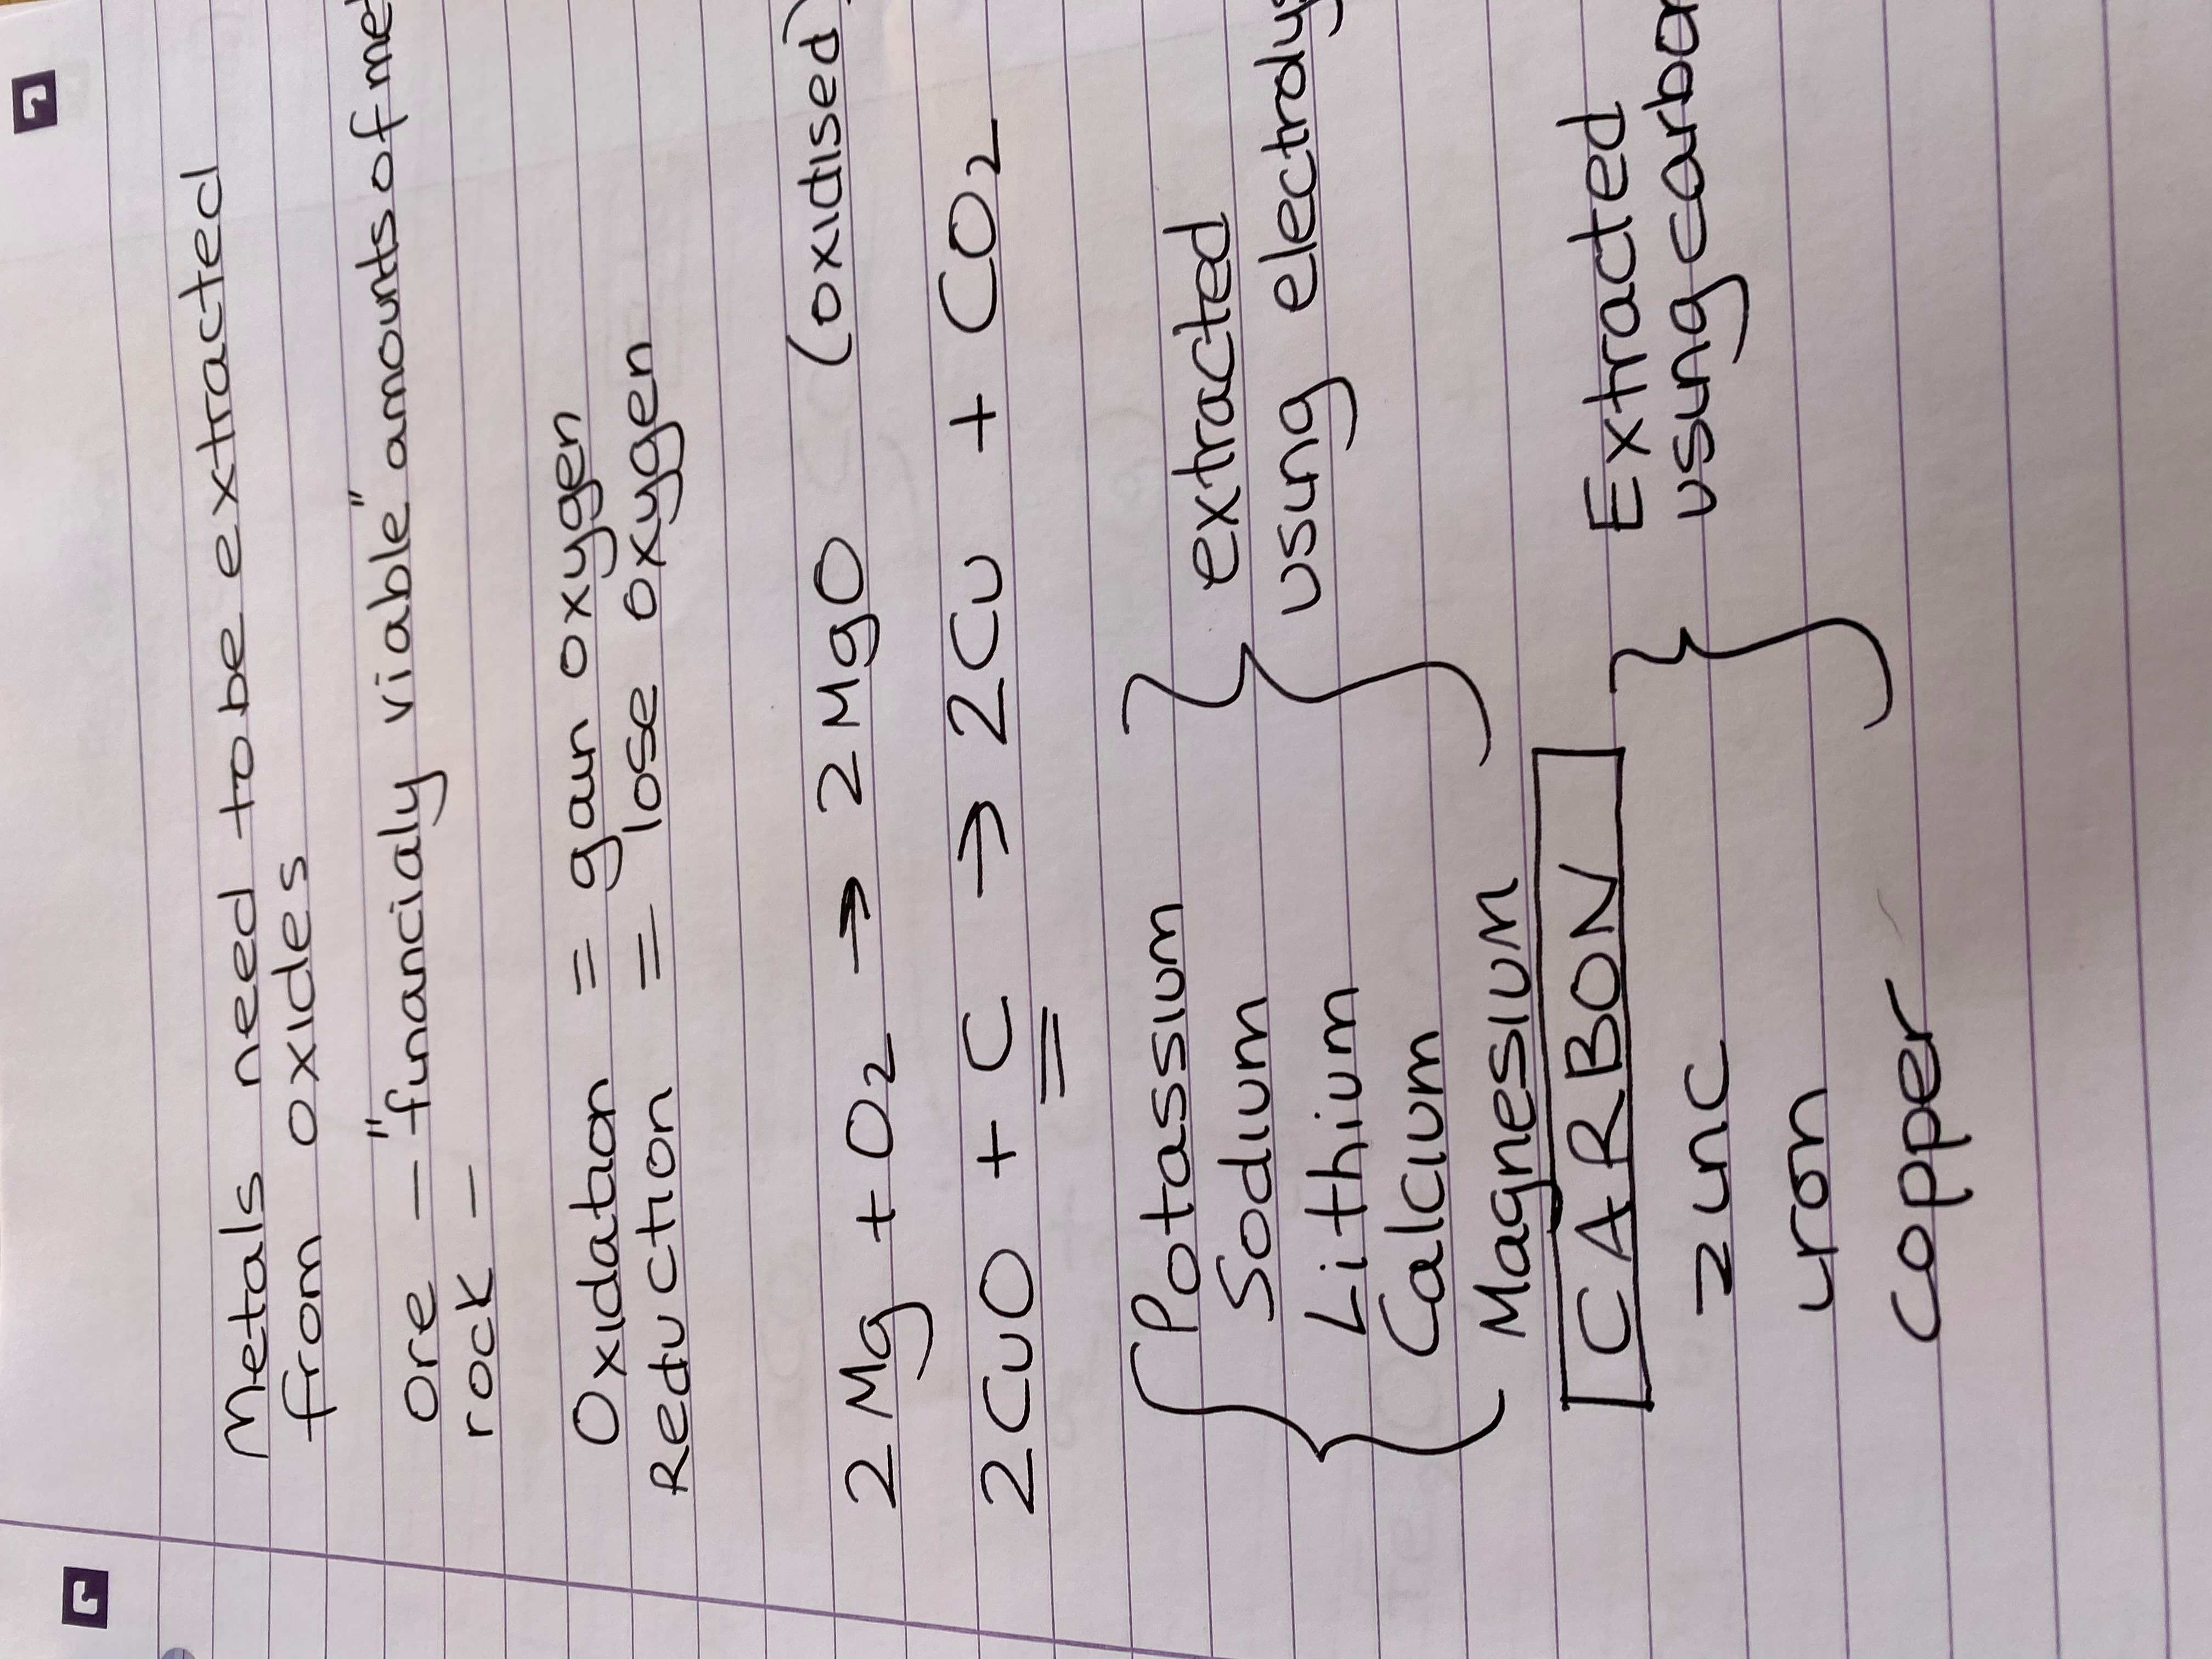 Metals need to be extracted
from oxides
Ore - "financialy viable" amounts of me
rock -
Oxidation = gain oxygen
Reduction = lose oxygen
2Mg + O₂ → 2MgO (oxidised)
2CuO + C → 2Cu + CO₂
Potassium
Sodium
Lithium
Calcium
Magnesium
extracted
using electrolys
CARBON
zinc
iron
copper
Extracted
using carbo